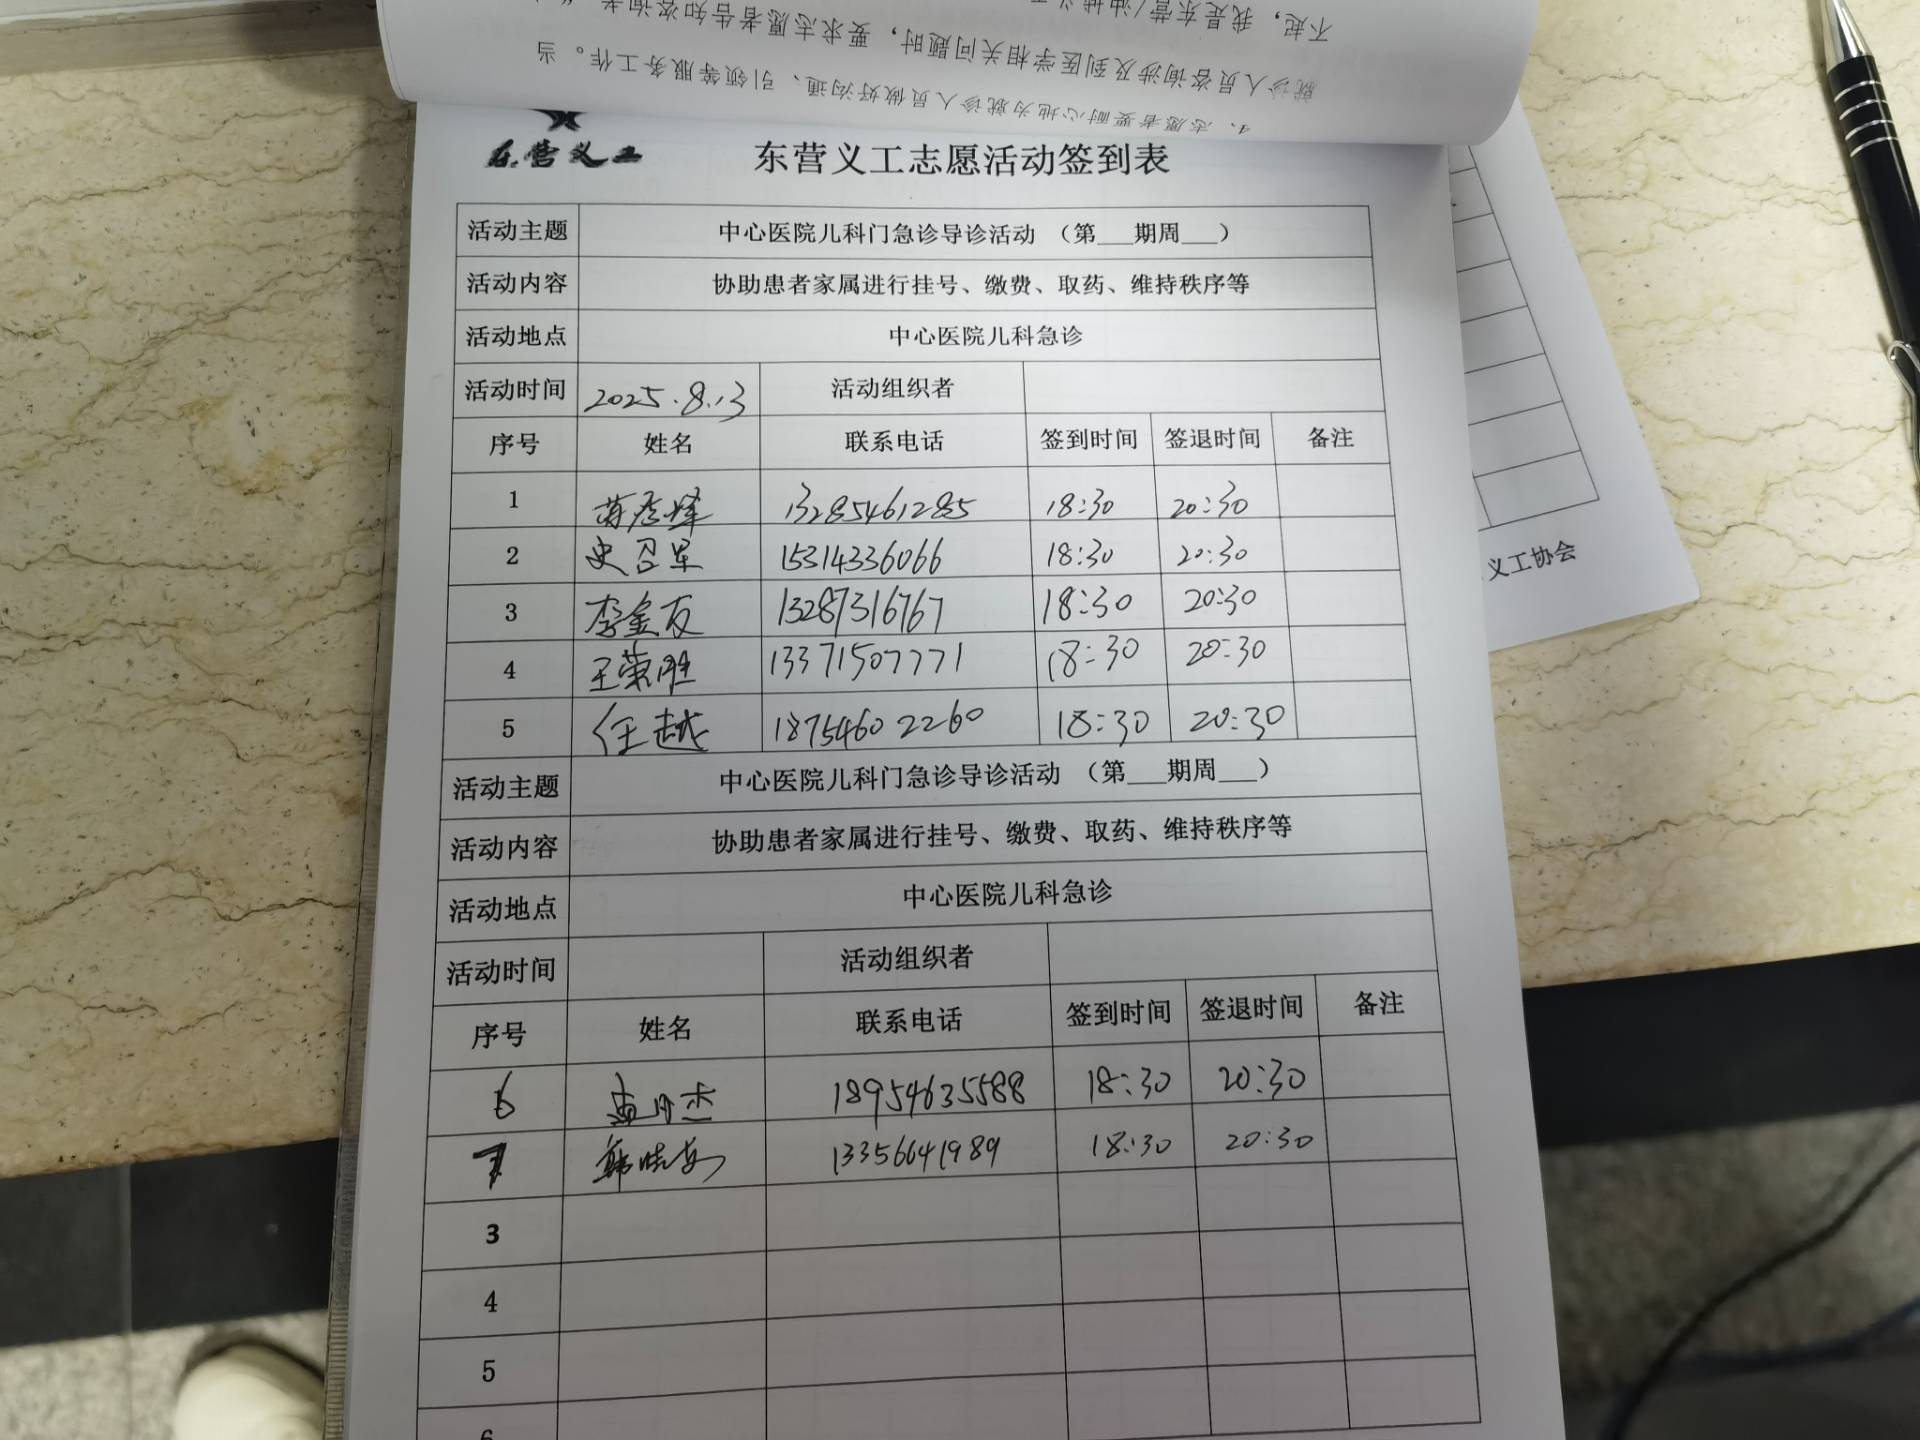 不起，我是东营
就诊人员咨询涉及到医学相关问题时，要求志愿者告知咨询者
4、志愿者要耐心地为就诊人员做好沟通、引领等服务工作。当
东营义工
东营义工志愿活动签到表
活动主题 中心医院儿科门急诊导诊活动 （第___期周___）
活动内容 协助患者家属进行挂号、缴费、取药、维持秩序等
活动地点 中心医院儿科急诊
活动时间 2025.8.13 活动组织者
序号 姓名 联系电话 签到时间 签退时间 备注
1 13285461285 18:30 20:30
2 史召军 15314336066 18:30 20:30
3 李金友 13287316767 18:30 20:30
4 王荣胜 13371507771 18:30 20:30
5 任越 18754602260 18:30 20:30
活动主题 中心医院儿科门急诊导诊活动 （第___期周___）
活动内容 协助患者家属进行挂号、缴费、取药、维持秩序等
活动地点 中心医院儿科急诊
活动时间 活动组织者
序号 姓名 联系电话 签到时间 签退时间 备注
6 孟丹杰 18954635588 18:30 20:30
7 韩晓 13356641989 18:30 20:30
3
4
5
6
义工协会